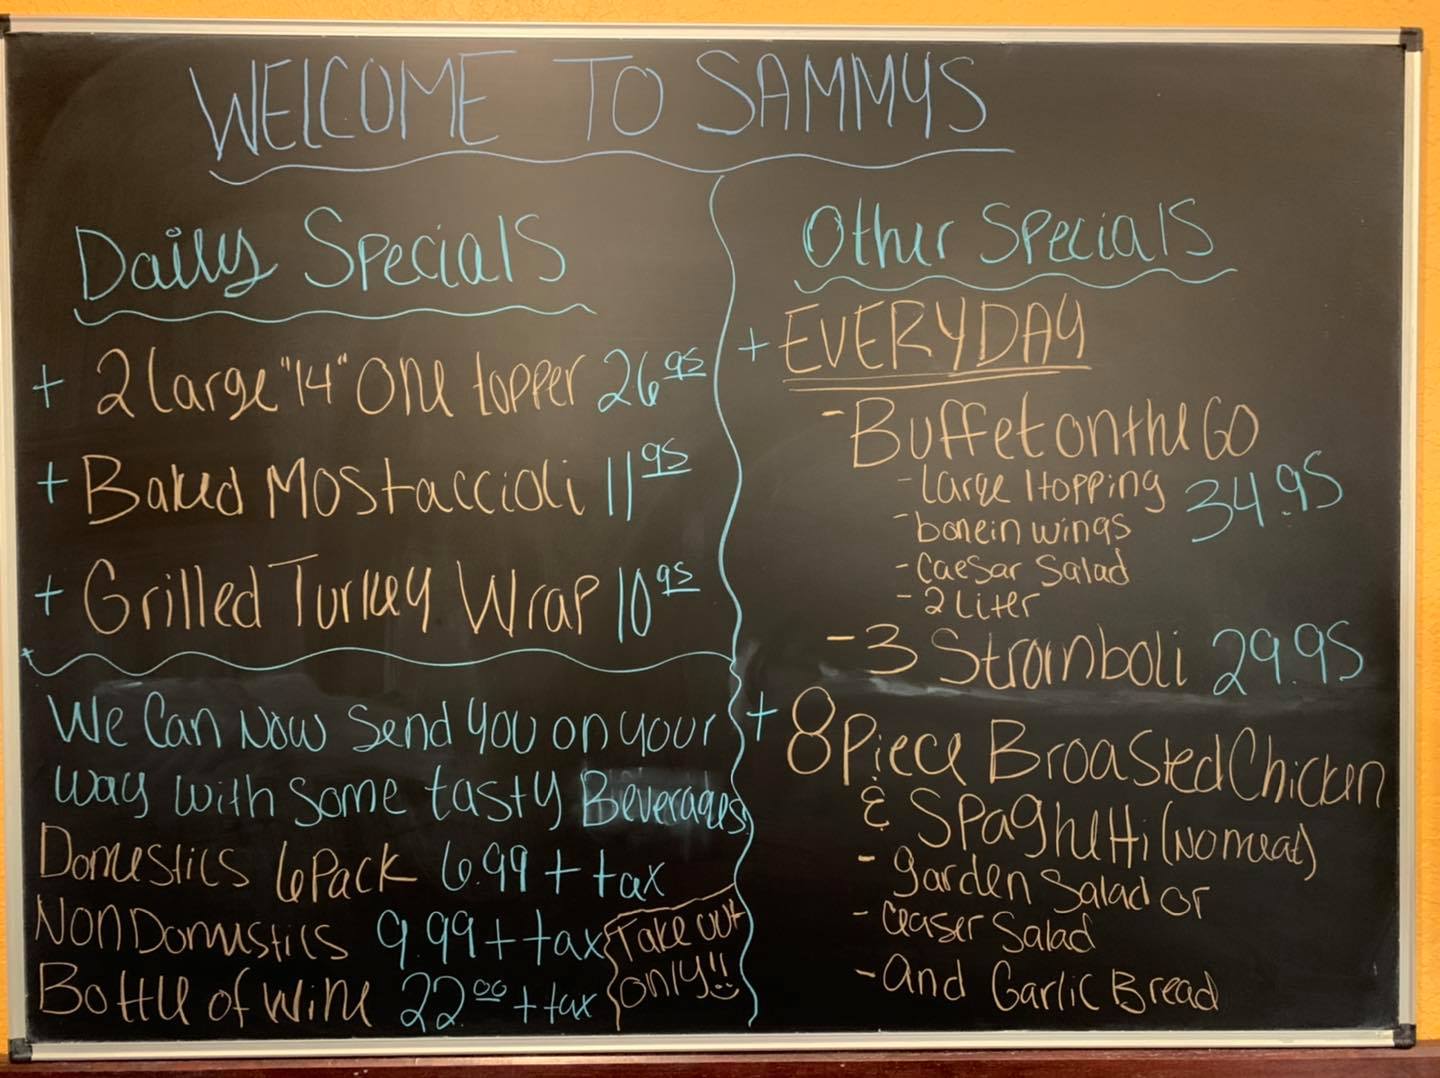 WELCOME TO SAMMYS
Daily Specials
+ 2 large "14" One topper 26.95
+ Baked Mostaccioli 11.95
+ Grilled Turkey Wrap 10.95
We Can Now Send you on your
way with some tasty Beverages
Domestics 6 Pack 6.99 + tax
Non Domestics 9.99 + tax
Bottle of Wine 22.00 + tax
Take out
only!!
Other Specials
+ EVERYDAY
- Buffet on the GO
- Large 1 topping 34.95
- bone in wings
- Caesar Salad
- 2 Liter
- 3 Stromboli 29.95
+ 8 Piece Broasted Chicken
& Spaghetti (no meat)
- garden Salad or
- Ceaser Salad
- and Garlic Bread